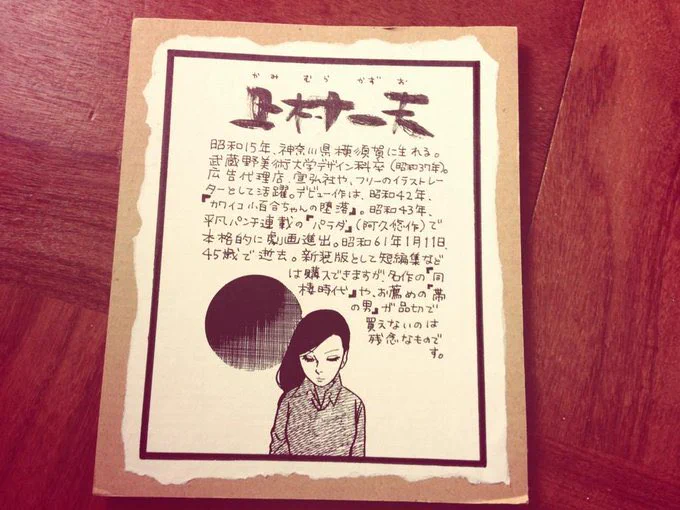 かみ むら かずお
上村一夫
昭和15年、神奈川県横須賀に生れる。
武蔵野美術大学デザイン科卒(昭和37年)。
広告代理店、宣弘社や、フリーのイラストレー
ターとして活躍。デビュー作は、昭和42年、
『カワイコ小百合ちゃんの堕落』。昭和43年、
平凡パンチ連載の『パラダ』(阿久悠作)で
本格的に劇画進出。昭和61年1月11日、
45歳で逝去。新装版として短編集など
は購入できますが、名作の『同
棲時代』や、お薦めの『帯
の男』が品切で
買えないのは
残念なもので
す。